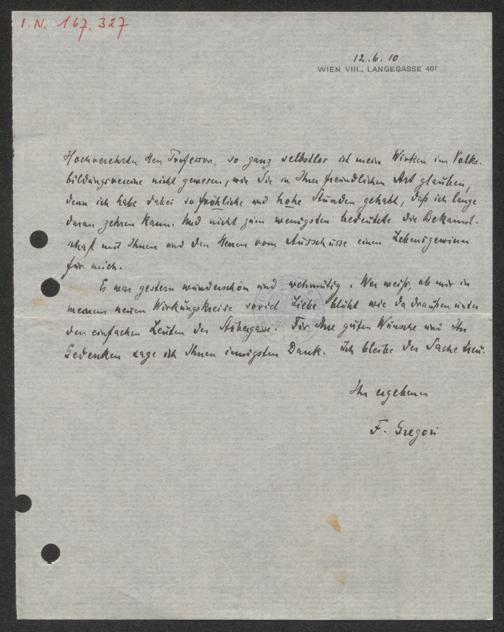 I.N. 167.327
12.6.10
WIEN VIII., LANGEGASSE 46
Hochverehrter Herr Professor, so ganz selbstlos ist mein Wirken im Volks-
bildungsvereine nicht gewesen, wie Sie in Ihrer freundlichen Art glauben,
denn ich habe dabei so fröhliche und hohe Stunden gehabt, daß ich lange
daran zehren kann. Und nicht zum wenigsten bedeutete die Bekannt-
schaft mit Ihnen und den Herren vom Ausschusse einen Lebensgewinn
für mich.
Es war gestern wunderschön und wehmütig. Wer weiß, ob mir in
meinem neuen Wirkungskreise soviel Liebe blüht wie da draußen unter
den einfachen Leuten der Stöbergasse. Für Ihre guten Wünsche und Ihr
Gedenken sage ich Ihnen innigsten Dank. Ich bleibe der Sache treu.
Ihr ergebener
F. Gregori